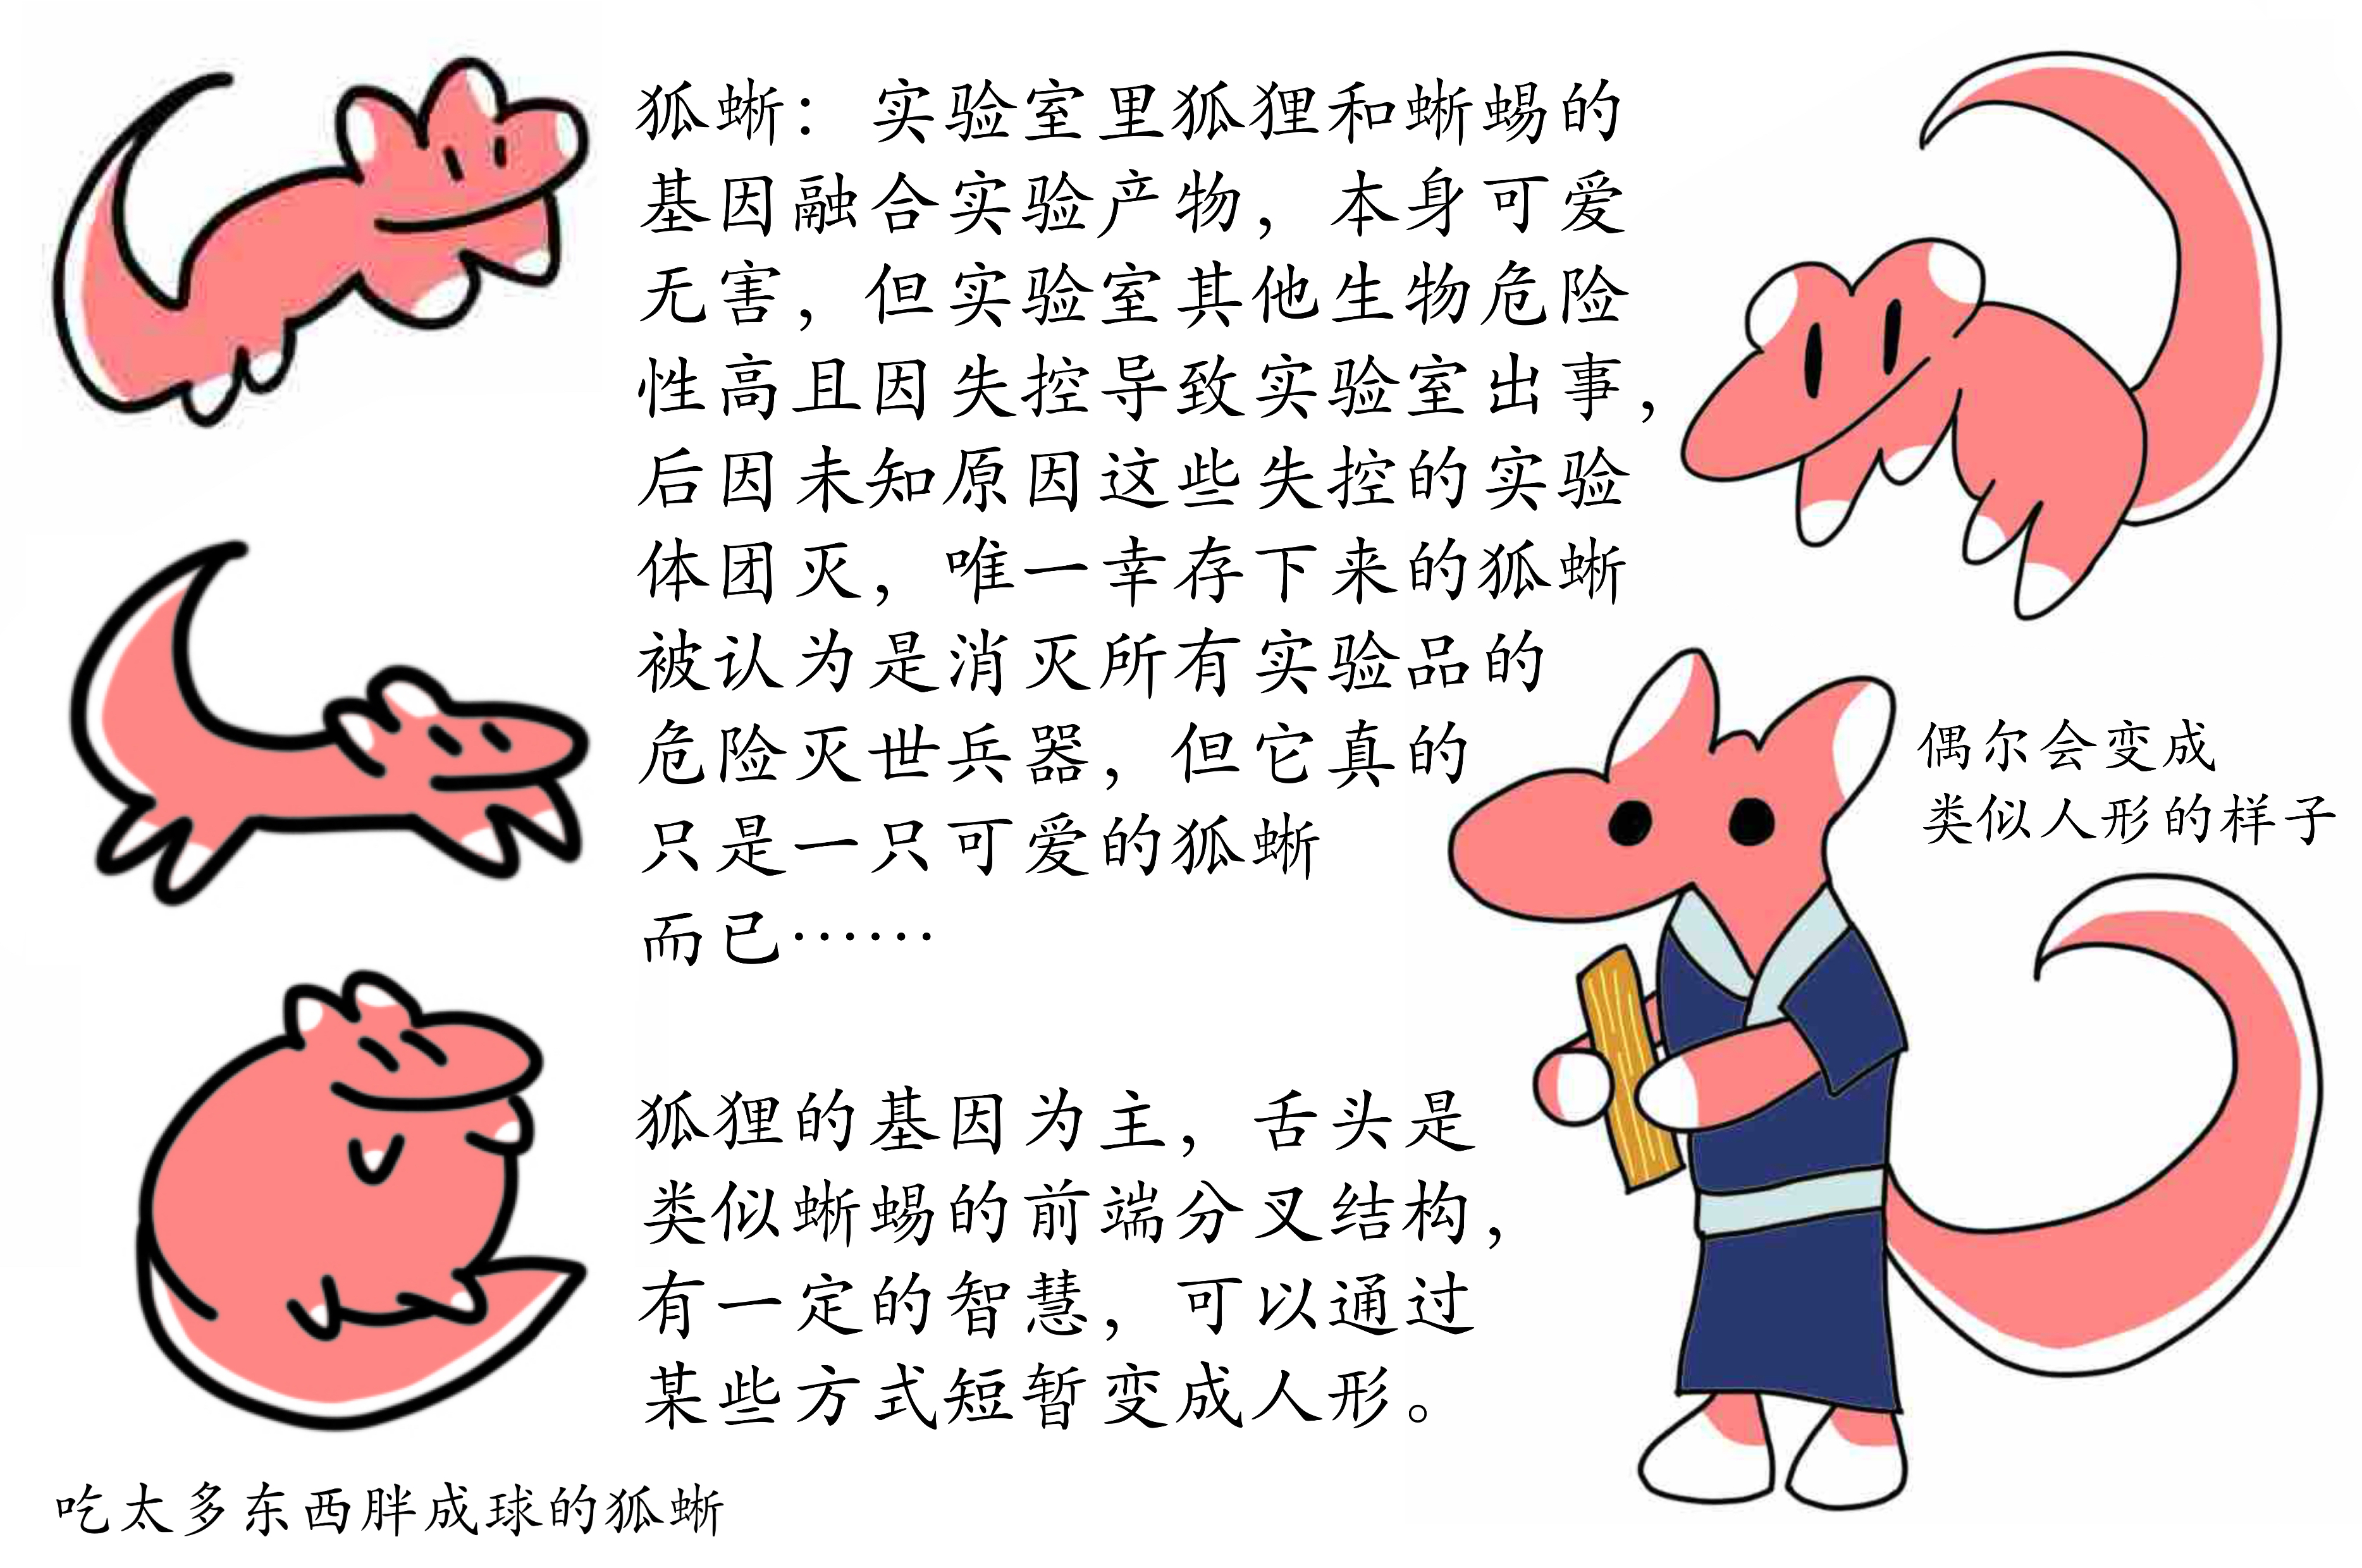 狐蜥：实验室里狐狸和蜥蜴的
基因融合实验产物，本身可爱
无害，但实验室其他生物危险
性高且因失控导致实验室出事，
后因未知原因这些失控的实验
体团灭，唯一幸存下来的狐蜥
被认为是消灭所有实验品的
危险灭世兵器，但它真的
只是一只可爱的狐蜥
而已……
偶尔会变成
类似人形的样子
狐狸的基因为主，舌头是
类似蜥蜴的前端分叉结构，
有一定的智慧，可以通过
某些方式短暂变成人形。
吃太多东西胖成球的狐蜥